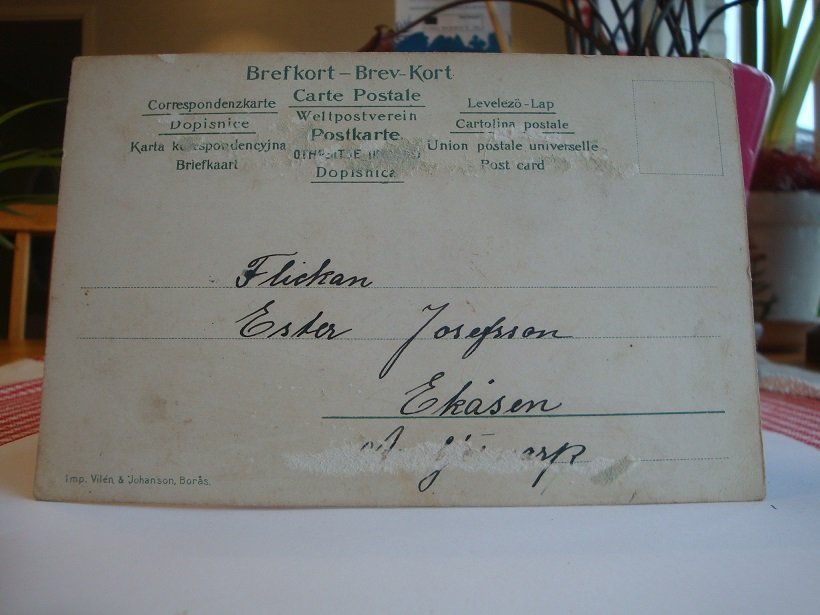 Brefkort – Brev-Kort
Correspondenzkarte Carte Postale Levelezö-Lap
Dopisnice Weltpostverein Cartolina postale
Karta korespondencyjna Postkarte Union postale universelle
Briefkaart Post card
Dopisnica
Flickan
Ester Josefsson
Ekåsen
Imp. Vilén & Johanson, Borås.